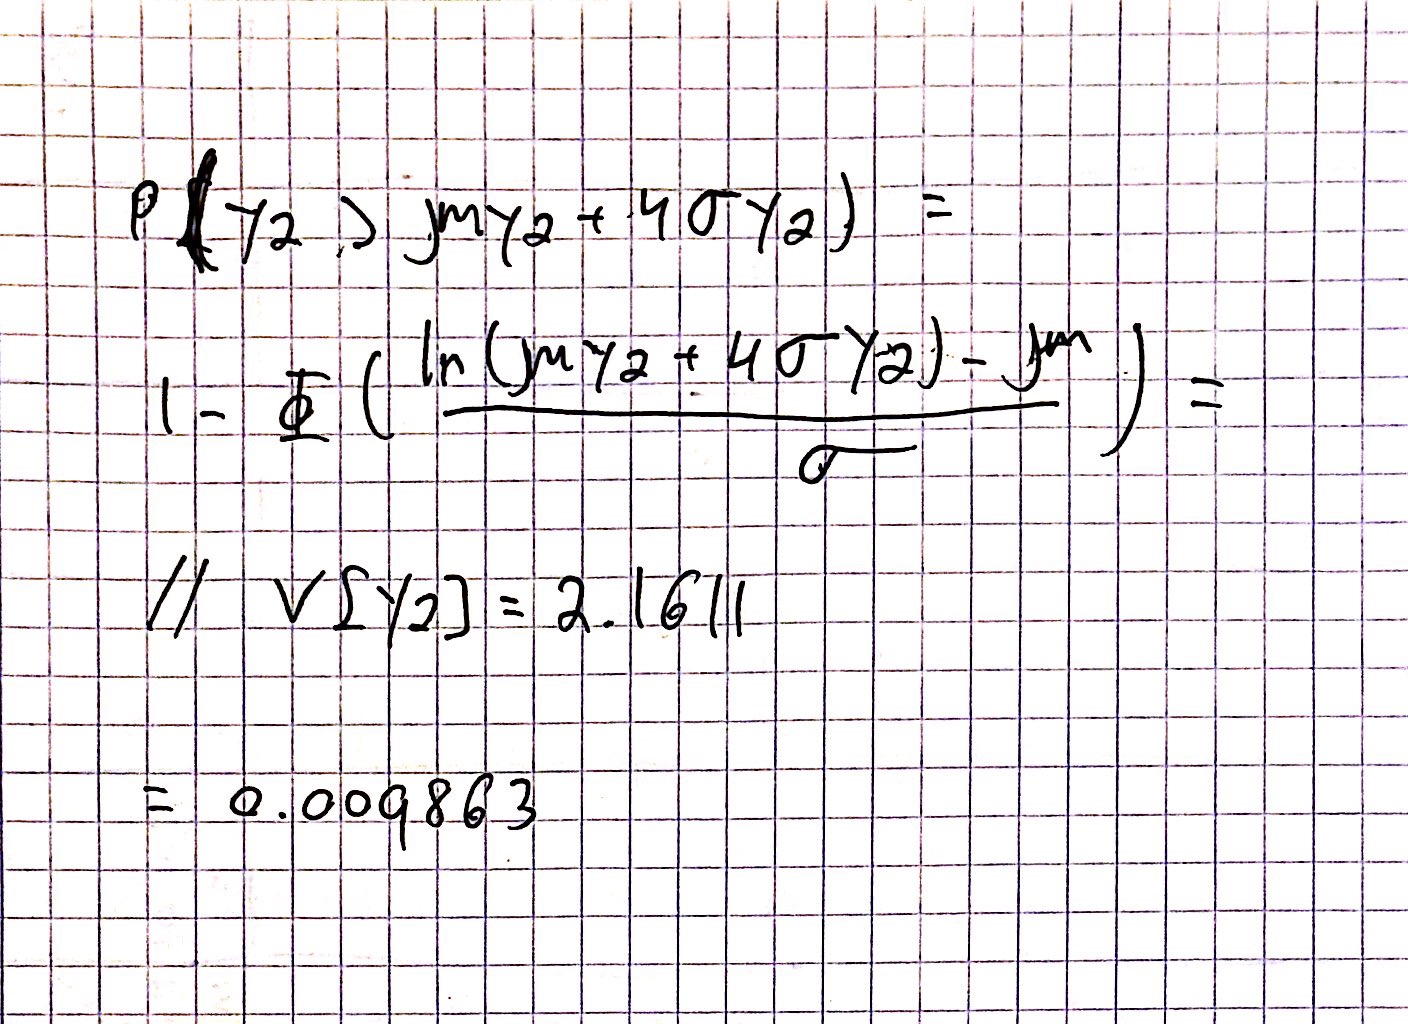 P(Y2 > μY2 + 4σY2) =
1 - Φ( (ln(μY2 + 4σY2) - μ) / σ ) =
// V[Y2] = 2.1611
= 0.009863